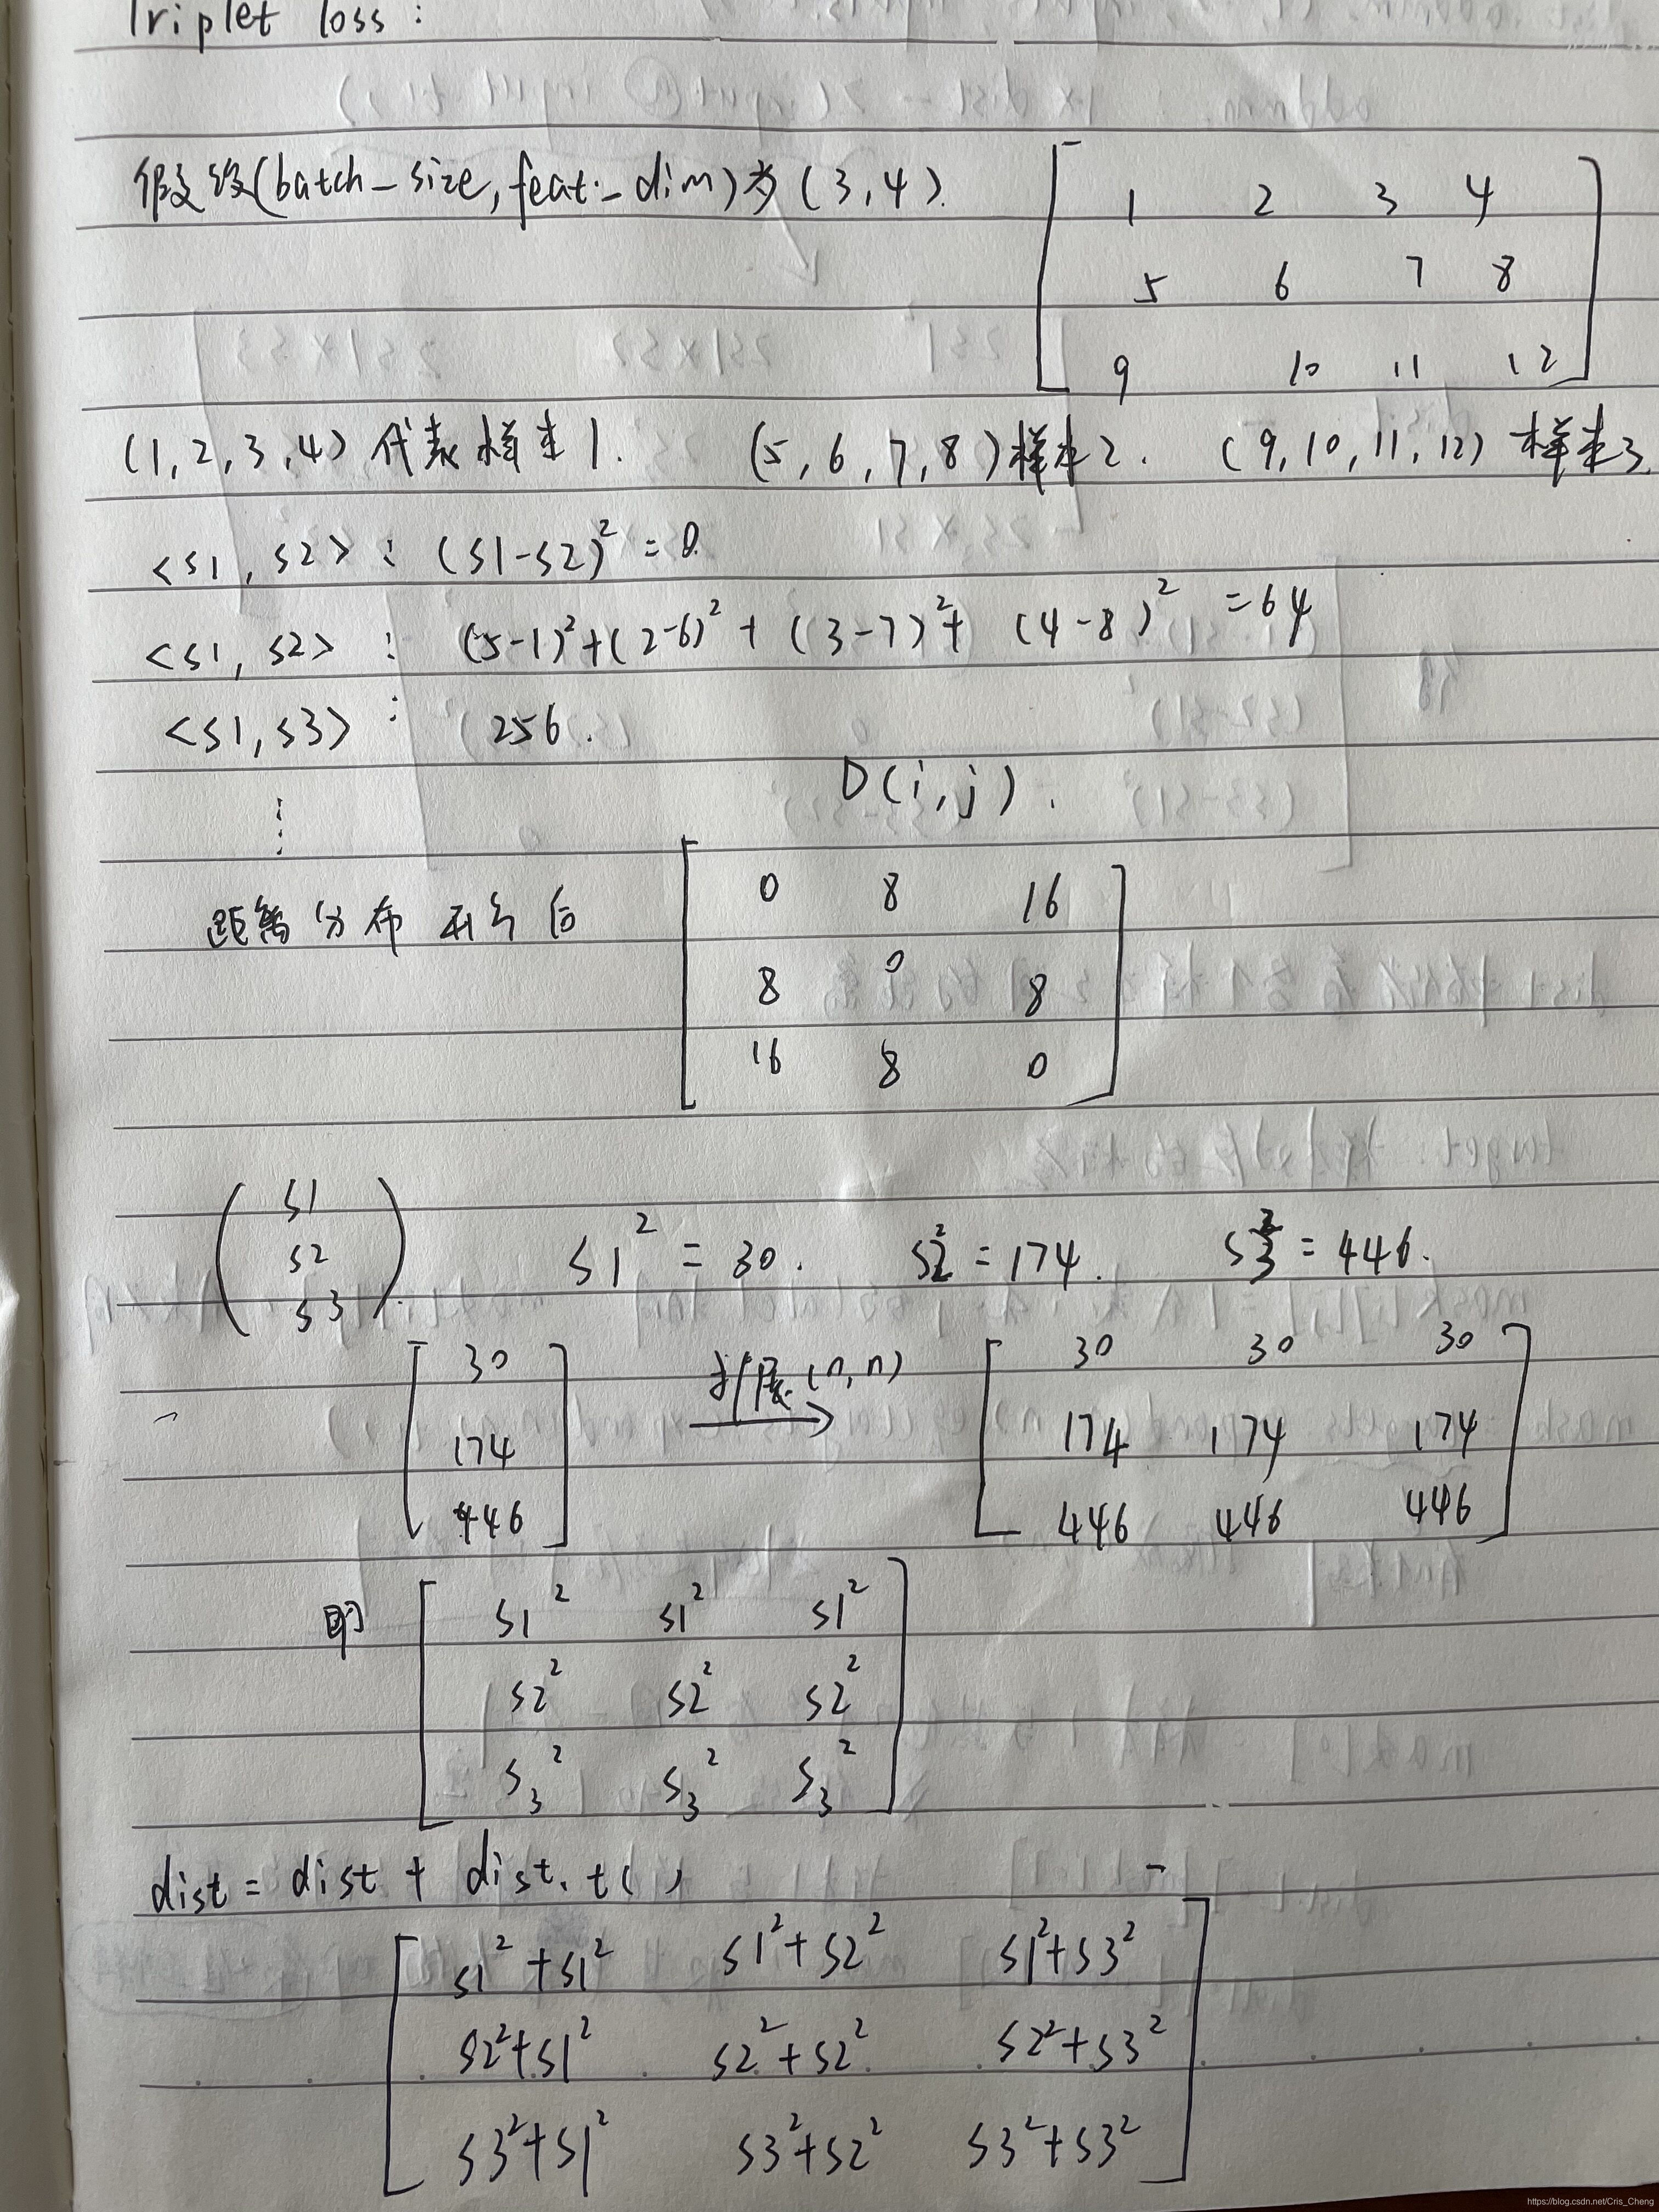 Triplet loss:
假设(batch_size, feat_dim)为(3,4).
1 2 3 4
5 6 7 8
9 10 11 12
(1,2,3,4)代表样本1. (5,6,7,8)样本2. (9,10,11,12)样本3.
<s1, s2> : (s1-s2)² = 0.
<s1, s2> : (5-1)²+(2-6)²+(3-7)²+(4-8)² = 64
<s1, s3> : 256.
⋮
D(i,j).
距离分布开方后
0 8 16
8 0 8
16 8 0
s1
s2
s3
s1² = 30. s2² = 174. s3² = 446.
30
174
446
扩展(n,n)
30 30 30
174 174 174
446 446 446
即
s1² s1² s1²
s2² s2² s2²
s3² s3² s3²
dist = dist + dist.t()
s1²+s1² s1²+s2² s1²+s3²
s2²+s1² s2²+s2² s2²+s3²
s3²+s1² s3²+s2² s3²+s3²
https://blog.csdn.net/Cris_Cheng